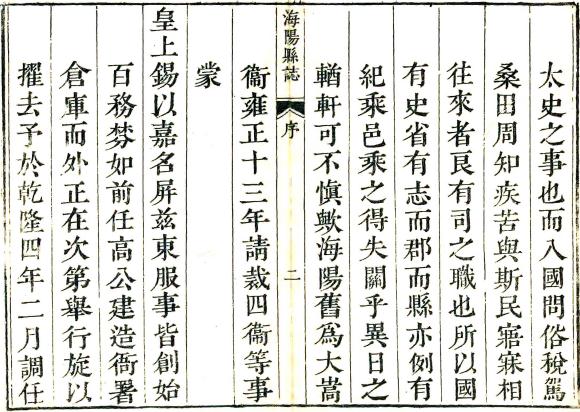 太史之事也而入國問俗稅駕
桑田周知疾苦與斯民寤寐相
往來者良有司之職也所以國
有史省有志而郡而縣亦例有
紀乘邑乘之得失關乎異日之
輶軒可不慎歟海陽舊為大嵩
衞雍正十三年請裁四衞等事
蒙
海陽縣誌
序
二
皇上錫以嘉名屏兹東服事皆創始
百務棼如前任高公建造衙署
倉庫而外正在次第舉行旋以
擢去予於乾隆四年二月調任